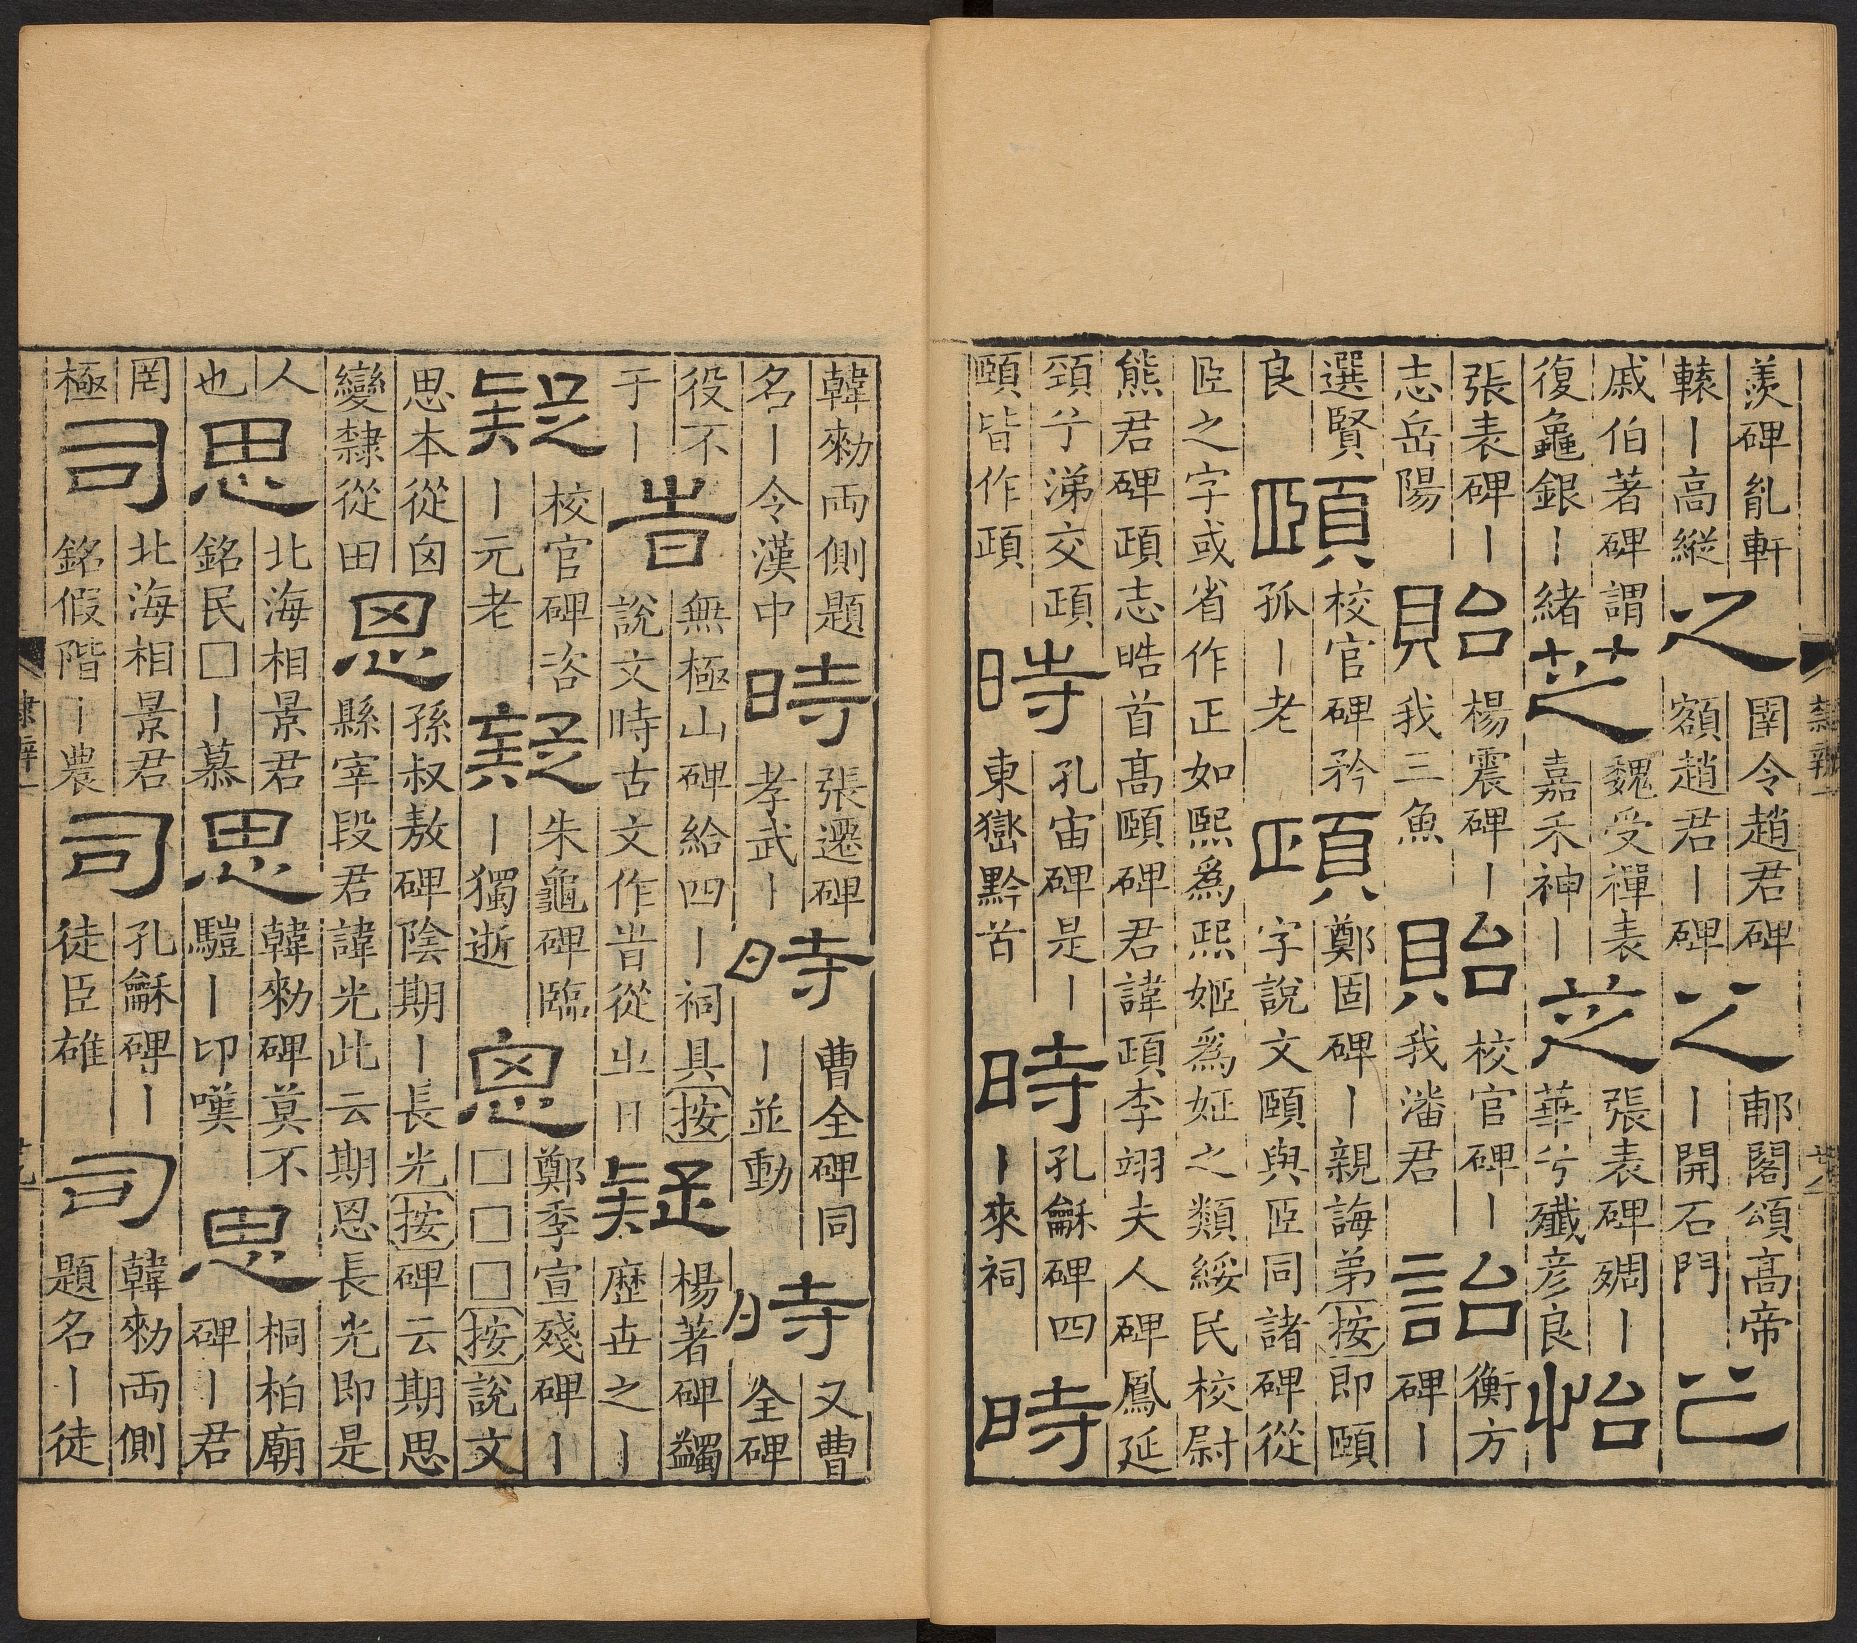 羨碑亂軒轅丨高縱之圉令趙君碑額趙君丨碑之郙閣頌高帝丨開石門之
戚伯著碑謂復龜銀丨緒芝魏受禪表嘉禾神丨芝張表碑殦丨華兮殲彥良怡
張表碑丨志岳陽貽楊震碑丨我三魚貽校官碑丨我潘君詒衡方碑丨
選賢良頤校官碑矜孤丨老頤鄭固碑丨親誨弟按即頤字說文頤與𦣞同諸碑從
𦣞之字或省作正如熙爲煕姬爲姃之類綏民校尉熊君碑頤志晧首高頤碑君諱頤李翊夫人碑鳳延
頸兮涕交頤頤皆作頤時孔宙碑是丨東嶽黔首時孔龢碑四丨來祠時
隸辨一
韓勑兩側題名丨令漢中時張遷碑孝武丨時曹全碑同丨並動時又曹全碑
役不于丨旹無極山碑給四丨祠具按說文時古文作旹從㞢日疑楊著碑蠲歷世之丨
疑校官碑咨丨元老疑朱龜碑臨丨獨逝恖鄭季宣殘碑丨□□□按說文
思本從囟變隸從田恖孫叔敖碑陰期丨長光按碑云期思縣宰段君諱光此云期恩長光即是
人也思北海相景君銘民□丨慕思韓勑碑莫不驓丨卬嘆思桐柏廟碑丨君
罔極司北海相景君銘假階丨農司孔龢碑丨徒臣雄司韓勑兩側題名丨徒
隸辨一